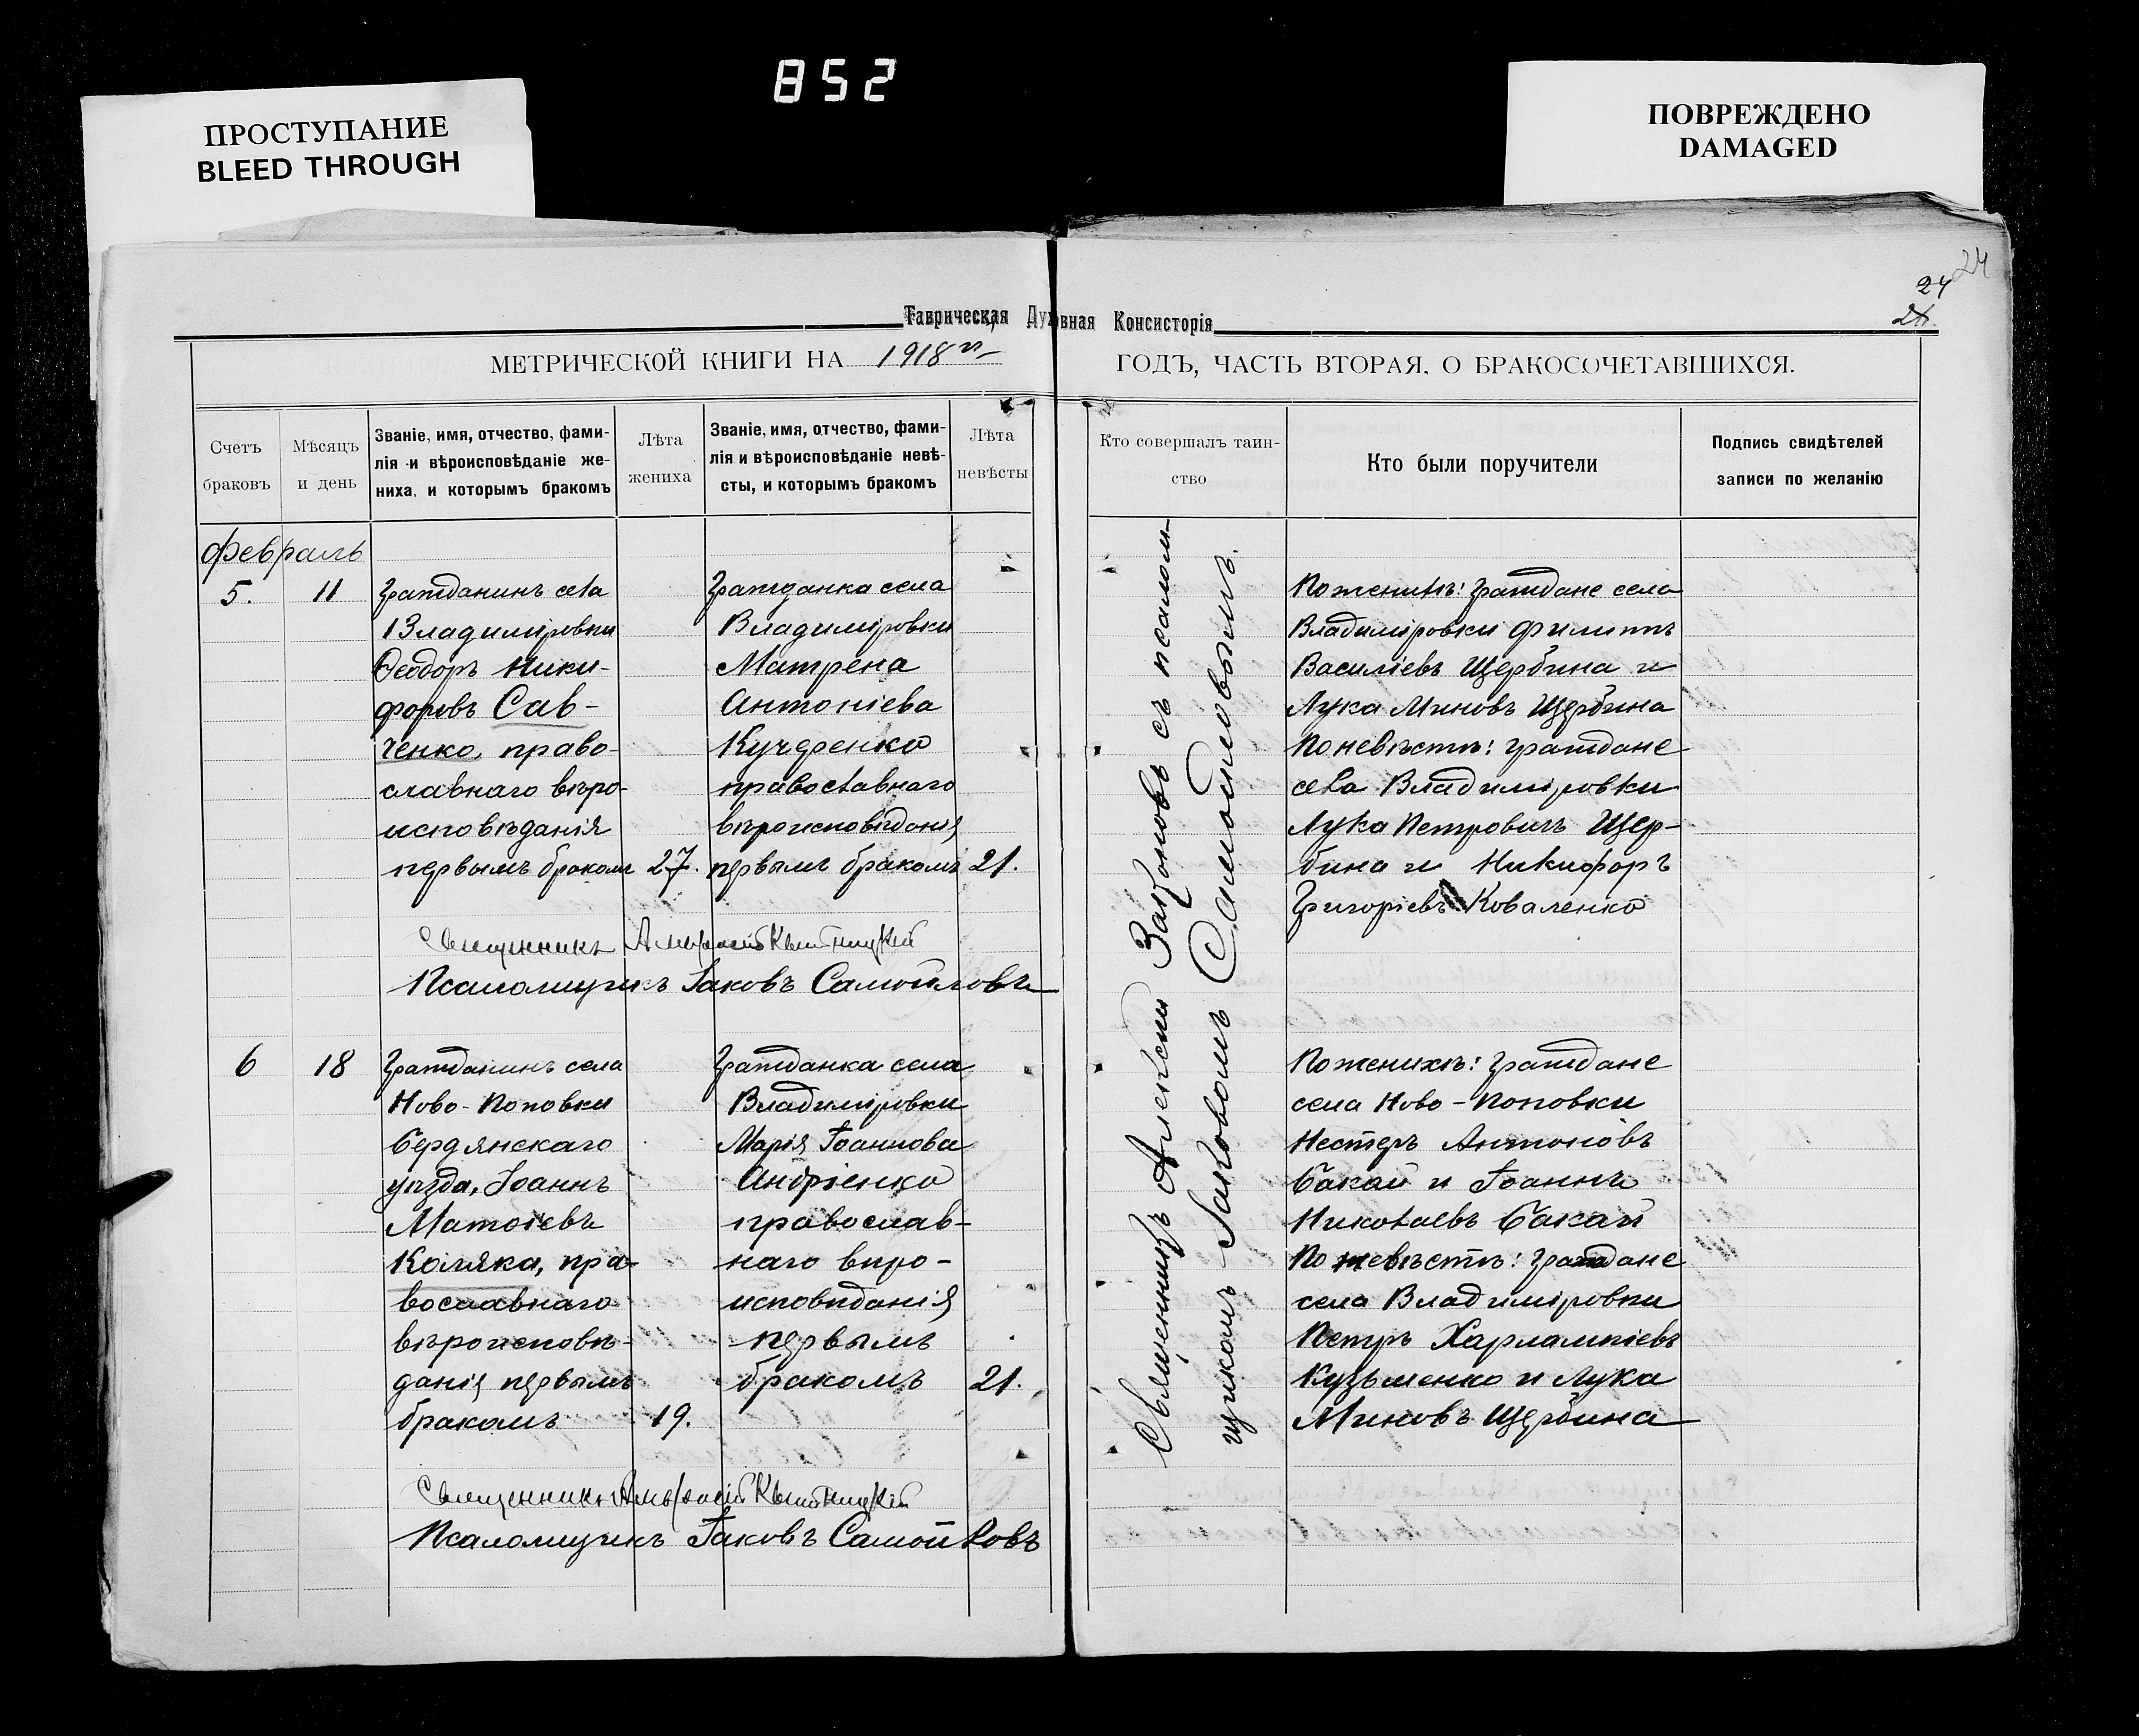 852
ПРОСТУПАНИЕ
BLEED THROUGH
ПОВРЕЖДЕНО
DAMAGED
24
24
Таврическая Духовная Консисторія
МЕТРИЧЕСКОЙ КНИГИ НА 1918 г.
ГОДЪ, ЧАСТЬ ВТОРАЯ, О БРАКОСОЧЕТАВШИХСЯ.
Счетъ
браковъ
Мѣсяцъ
и день
Званіе, имя, отчество, фами-
лія и вѣроисповѣданіе же-
ниха, и которымъ бракомъ
Лѣта
жениха
Званіе, имя, отчество, фами-
лія и вѣроисповѣданіе невѣ-
сты, и которымъ бракомъ
Лѣта
невѣсты
Кто совершалъ таин-
ство
Кто были поручители
Подпись свидѣтелей
записи по желанію
Февраль
5.
11
Гражданинъ села
Владиміровки
Ѳеодоръ Ники-
форовъ Сав-
ченко, право-
славнаго вѣро-
исповѣданія
первымъ бракомъ
27.
Гражданка села
Владиміровки
Матрена
Антоніева
Кучеренко
православнаго
вѣроисповѣданія
первымъ бракомъ
21.
Священникъ
Псаломщикъ Іаковъ Самойловъ
Священникъ Алексѣй Законовъ съ псалом-
щикомъ Іаковомъ Самойловымъ.
По женихѣ: Граждане села
Владиміровки Филиппъ
Василіевъ Щербина и
Лука Миновъ Щербина
По невѣстѣ: Граждане
села Владиміровки
Лука Петровичъ Щер-
бина и Никифоръ
Григоріевъ Коваленко
6
18
Гражданинъ села
Ново-Поповки
Бердянскаго
уѣзда, Іоаннъ
Матѳіевъ
Коляка, пра-
вославнаго
вѣроисповѣ-
данія первымъ
бракомъ
19.
Гражданка села
Владиміровки
Марія Іоаннова
Андріенко
православ-
наго вѣро-
исповѣданія
первымъ
бракомъ
21.
Священникъ
Псаломщикъ Іаковъ Самойловъ
По женихѣ: Граждане
села Ново-Поповки
Нестеръ Антоновъ
Бакай и Іоаннъ
Николаевъ Бакай
По невѣстѣ: Граждане
села Владиміровки
Петръ Харлампіевъ
Кузьменко и Лука
Миновъ Щербина